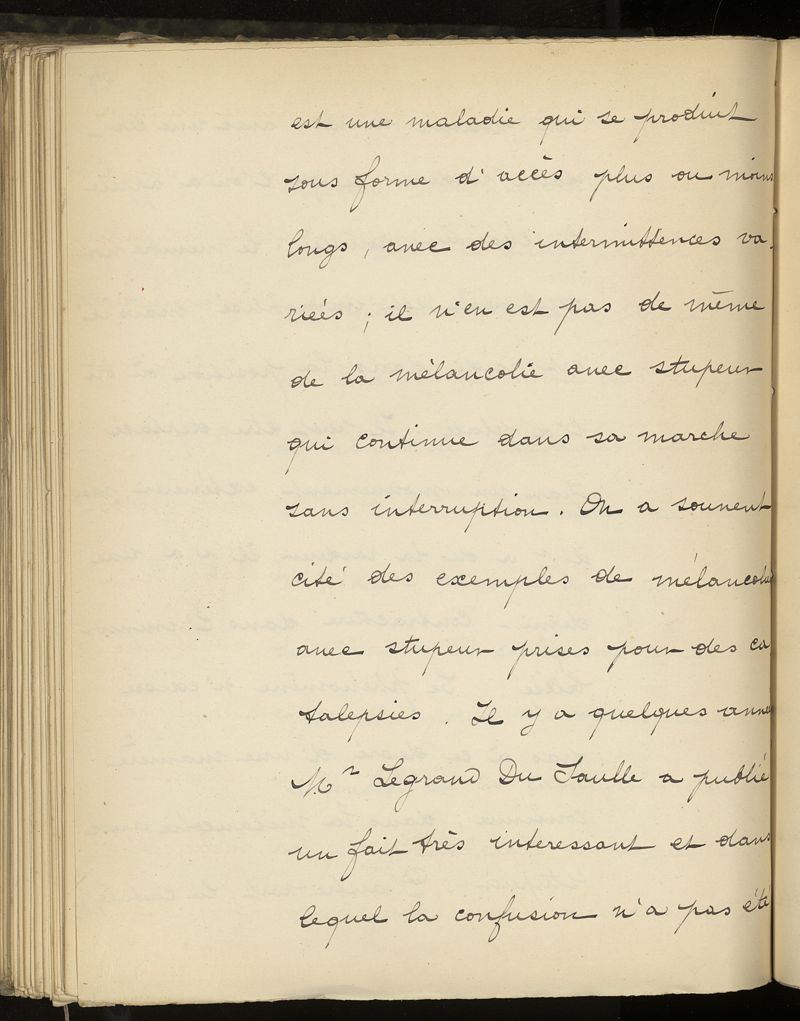 est une maladie qui se produit
sous forme d'accès plus ou moins
longs, avec des intermittences va-
rieés ; il n'en est pas de même
de la mélancolie avec stupeur
qui continue dans sa marche
sans interruption. On a souvent
cité des exemples de mélancolie
avec stupeur prises pour des ca
talepsies. Il y a quelques année
Mr Legrand Du Saulle a publié
un fait très interessant et dans
lequel la confusion n'a pas été